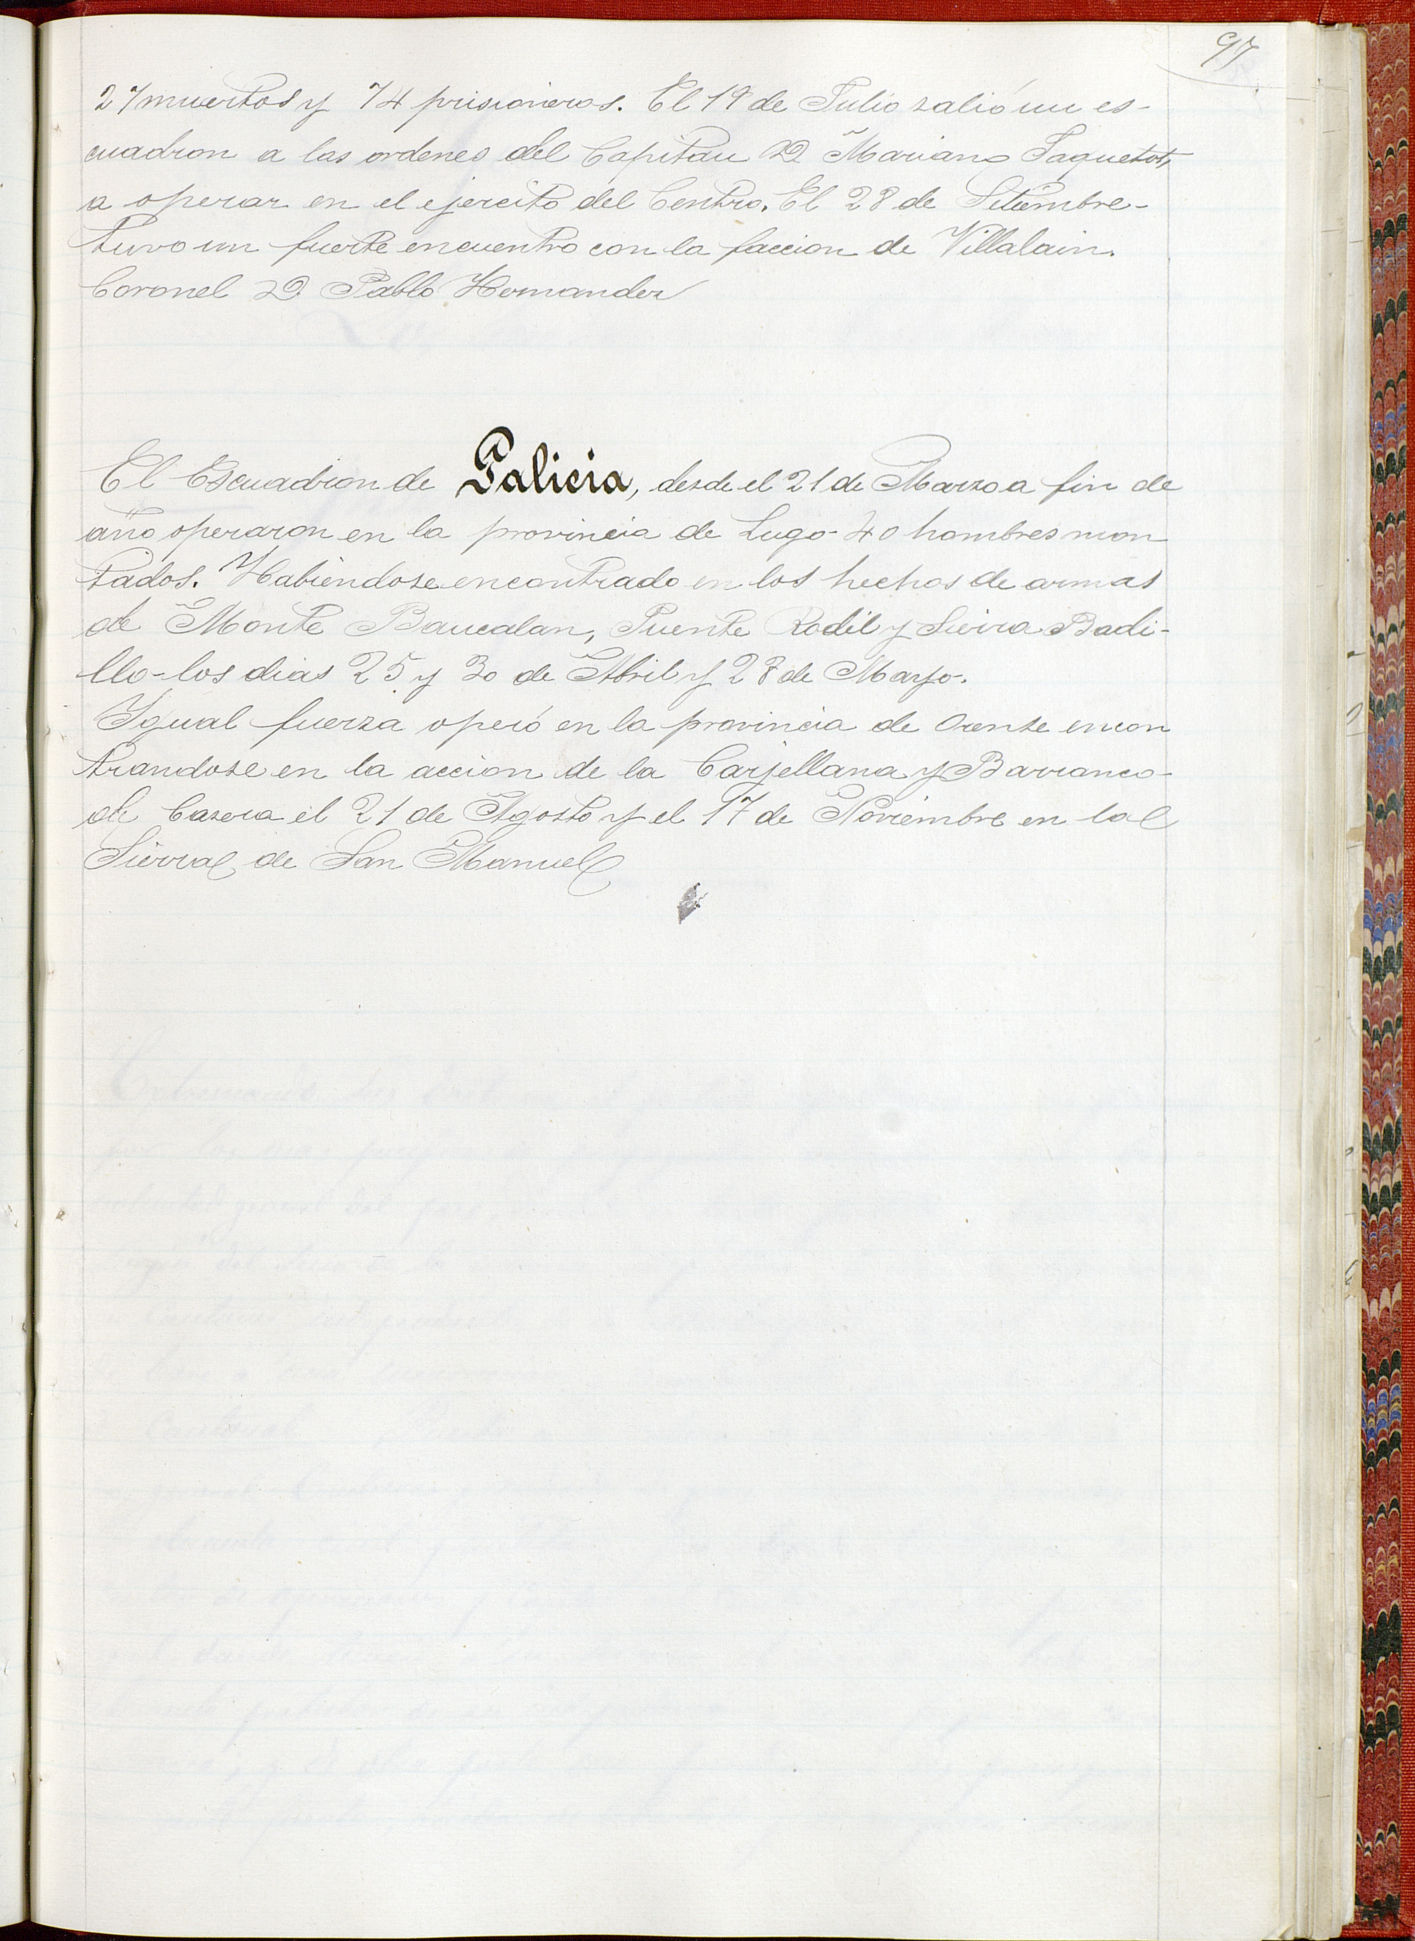 97
27 muertos y 74 prisioneros. El 19 de Julio salió un es-
cuadron a las ordenes del Capitan D Mariano Taquetot,
a operar en el ejercito del Centro. El 28 de Setiembre-
tuvo un fuerte encuentro con la faccion de Villalain.
Coronel D Pablo Hernandez
El Escuadron de Galicia, desde el 21 de Marzo a fin de
año operaron en la provincia de Lugo 40 hombres mon
tados. Habiendose encontrado en los hechos de armas
de Monte Baucalan, Puente Rodil y Sierra Badi-
llo-los dias 25 y 30 de Abril y 28 de Mayo.
Igual fuerza operó en la provincia de Orense encon
trandose en la accion de la Carjellana y Barranco-
de Casera el 21 de Agosto y el 17 de Noviembre en la
Sierra de San Manuel